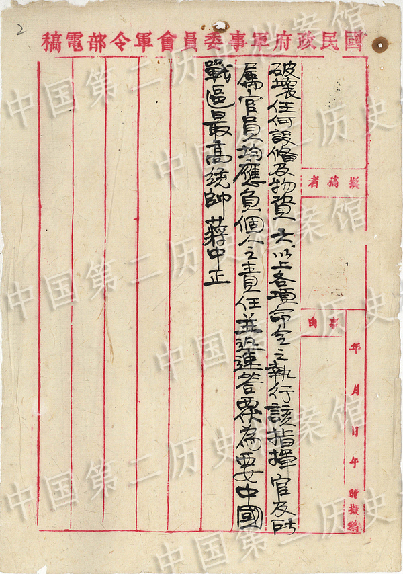 2
國民政府軍事委員會軍令部電稿
擬稿者
事由
年 月 日 午 時擬稿
破壞任何設備及物資 六、以上各項命令之執行該指揮官及所
屬官員均應負個人之責任並迅速答覆為要中國
戰區最高統帥 蔣中正
中国第二历史档案馆